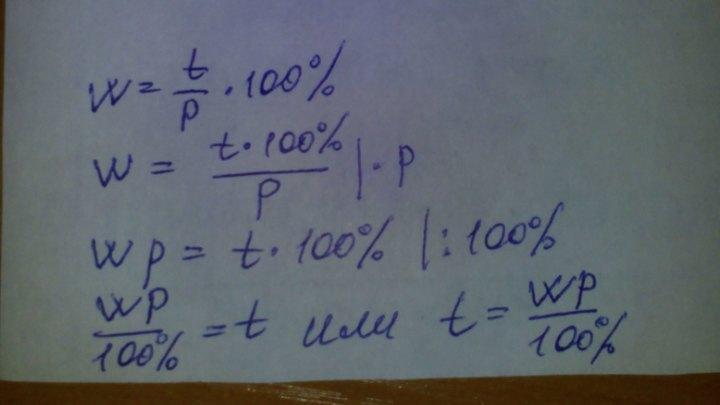 w = t/p · 100%
w = t · 100% / p | · p
wp = t · 100% | : 100%
wp/100% = t или t = wp/100%